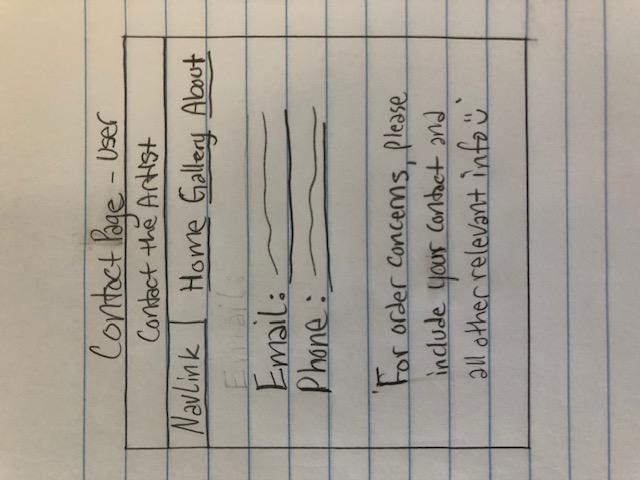 Contact Page - User
Contact the Artist
NavLink Home Gallery About
Email:
Email:
Phone:
"For order concerns, please
include your contact and
all other relevant info ☺"